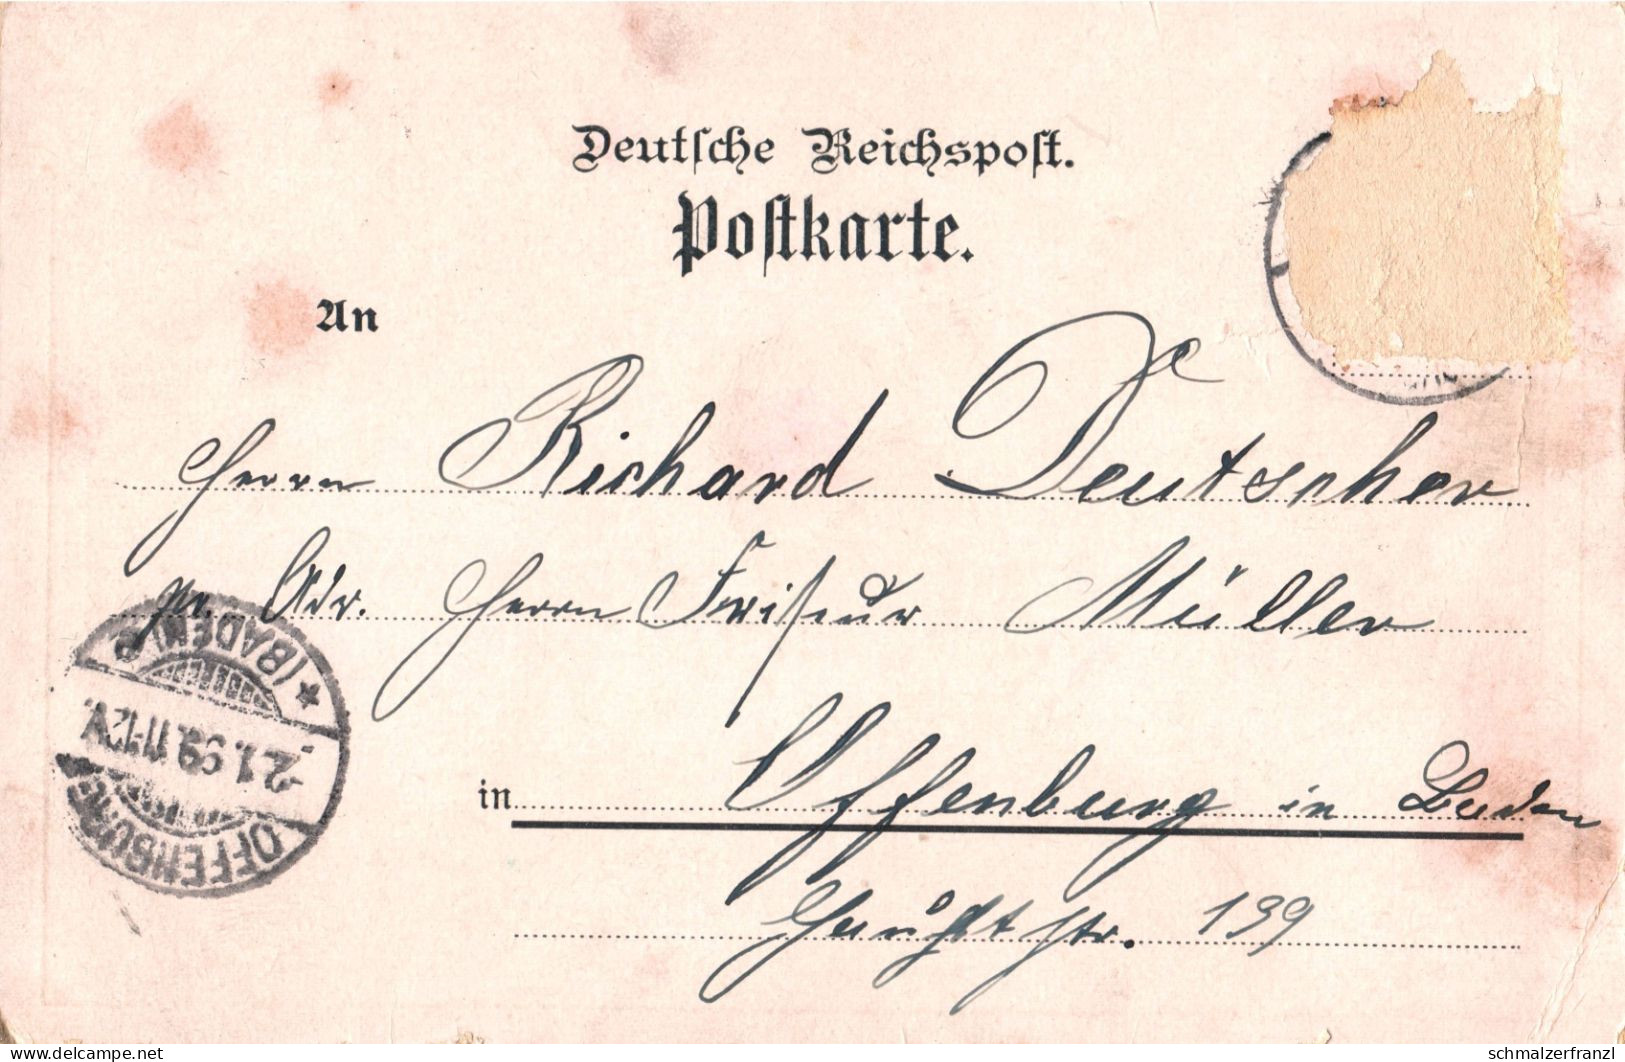 Deutsche Reichspost.
Postkarte.
An
Herrn Richard Deutscher
pr. Adr. Herrn Friseur Müller
in Offenburg in Baden
Hauptstr. 199
OFFENBURG
2.1.99.11-12V.
* (BADEN) *
delcampe.net
schmalzerfranzl